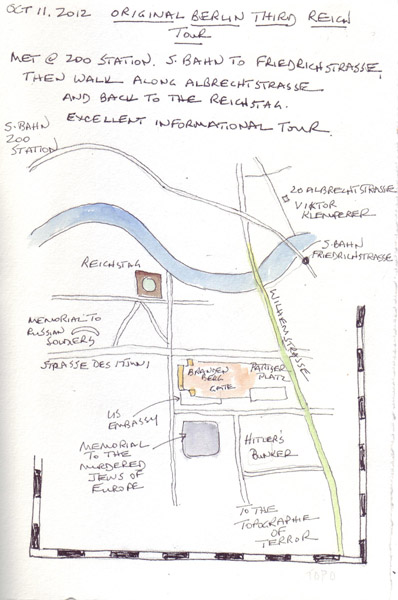 OCT 11. 2012 ORIGINAL BERLIN THIRD REICH
TOUR
MET @ ZOO STATION. S. BAHN TO FRIEDRICHSTRASSE,
THEN WALK ALONG ALBRECHTSTRASSE
AND BACK TO THE REICHSTAG.
EXCELLENT INFORMATIONAL TOUR.
S-BAHN
ZOO
STATION
20 ALBRECHTSTRASSE
VIKTOR
KLEMPERER
S-BAHN
FRIEDRICHSTRASSE
REICHSTAG
WILHEMSTRASSE
MEMORIAL TO
RUSSIAN
SOLDIERS
STRASSE DES 17 JUNI
BRANDEN
BERG
GATE
PARISER
PLATZ
US
EMBASSY
MEMORIAL
TO THE
MURDERED
JEWS OF
EUROPE
HITLER'S
BUNKER
TO THE
TOPOGRAPHIE
OF
TERROR
TOPO